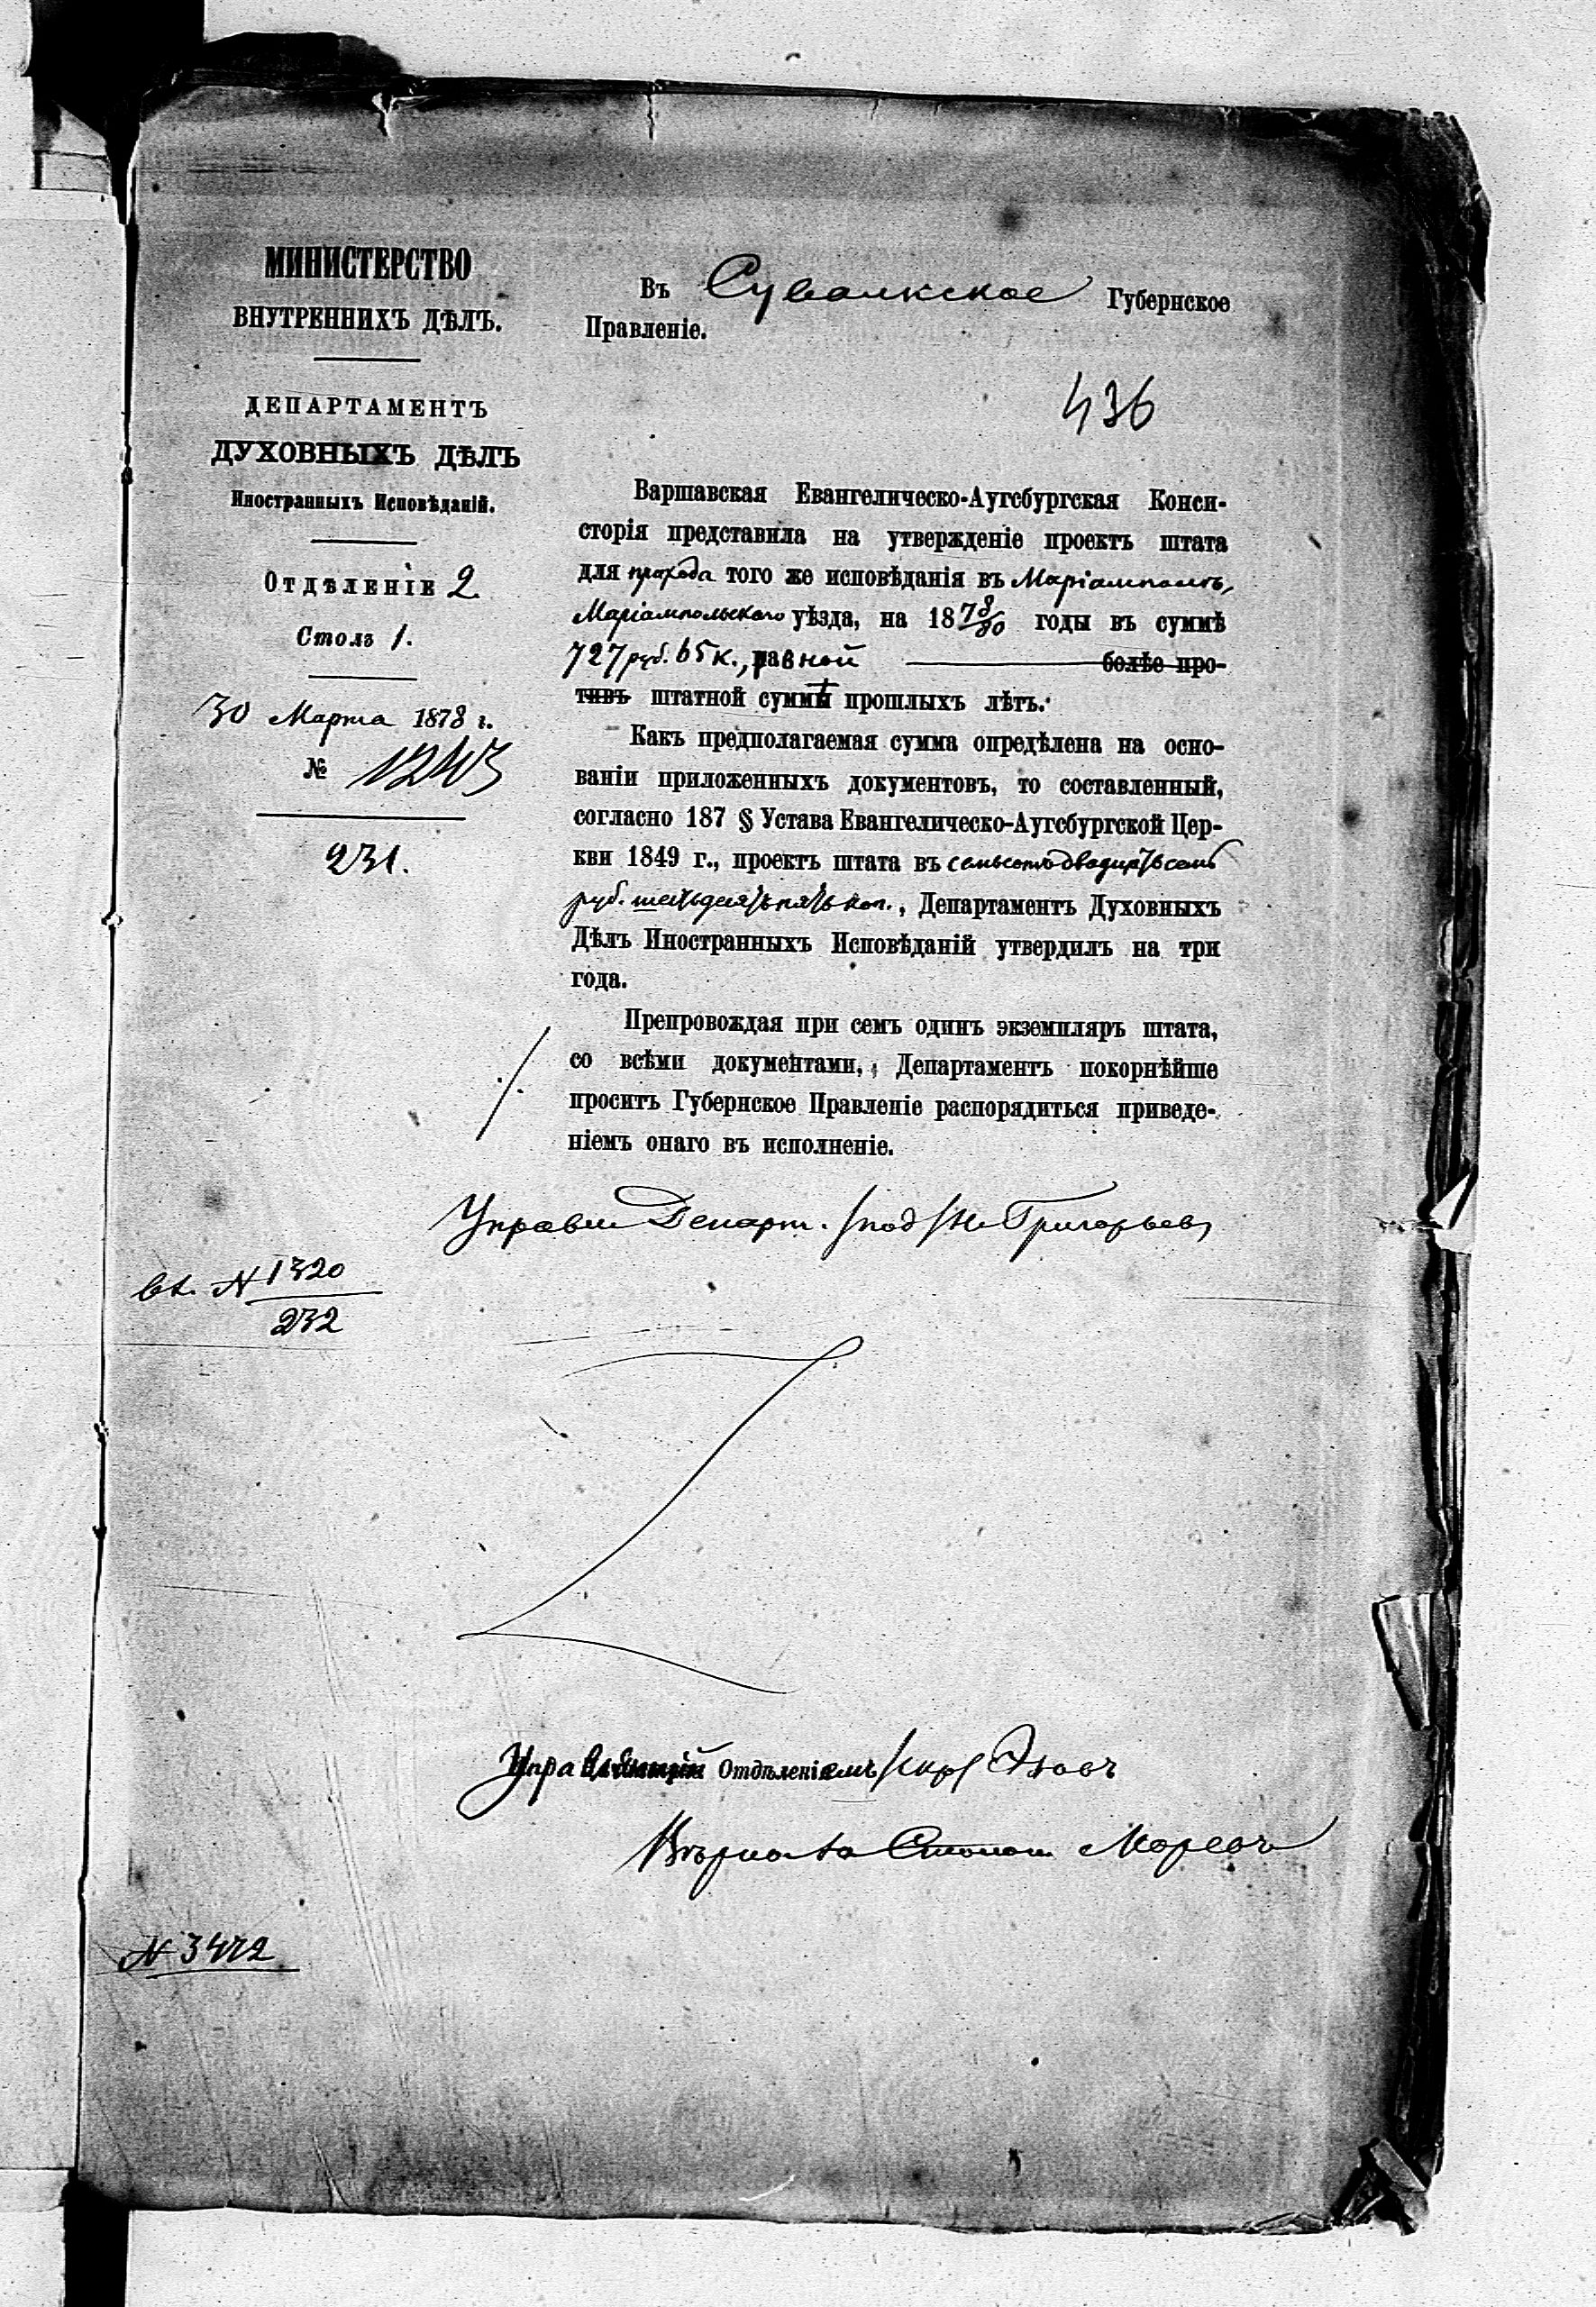 МИНИСТЕРСТВО
ВНУТРЕННИХЪ ДѢЛЪ.
ДЕПАРТАМЕНТЪ
ДУХОВНЫХЪ ДѢЛЪ
Иностранныхъ Исповѣданій.
Отдѣленіе 2.
Столъ 1.
30 Марта 1878 г.
№ 1243
231.
Въ Сувалкское Губернское
Правленіе.
436
Варшавская Евангелическо-Аугсбургская Конси-
сторія представила на утвержденіе проектъ штата
для прихода того же исповѣданія въ Маріамполѣ,
Маріампольскаго уѣзда, на 1878/80 годы въ суммѣ
727 руб. 65 к., равной болѣе про-
тивъ штатной суммѣ прошлыхъ лѣтъ.
Какъ предполагаемая сумма опредѣлена на осно-
ваніи приложенныхъ документовъ, то составленный,
согласно 187 § Устава Евангелическо-Аугсбургской Цер-
кви 1849 г., проектъ штата въ семьсотъ двадцать семь
руб. шестьдесятъ пять коп., Департаментъ Духовныхъ
Дѣлъ Иностранныхъ Исповѣданій утвердилъ на три
года.
Препровождая при семъ одинъ экземпляръ штата,
со всѣми документами, Департаментъ покорнѣйше
проситъ Губернское Правленіе распорядиться приведе-
ніемъ онаго въ исполненіе.
Управл Департ. /под/ Григорьевъ
вх. N 1320
232
Управляющій Отдѣленіемъ /скр/
Вѣрно: Моревъ
N 3472